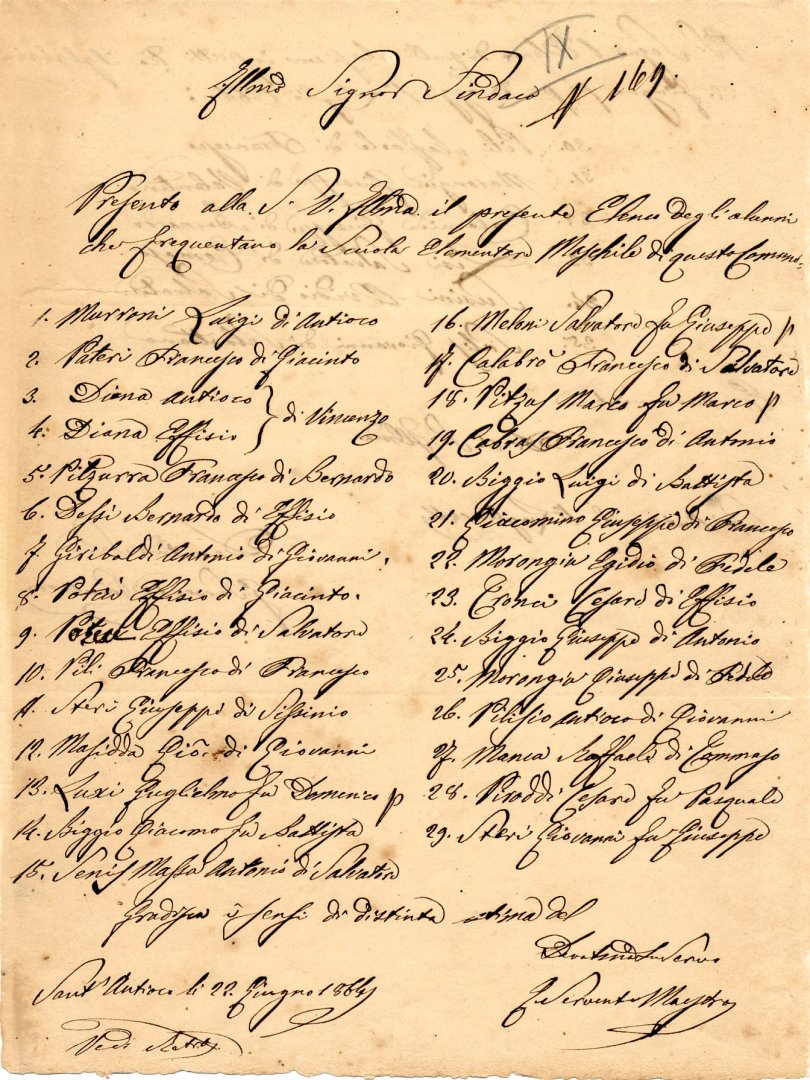 IX
Illmo Signor Sindaco N 169
Presento alla S. V. Illma il presente Elenco degli alunni
che frequentano la Scuola Elementare Maschile di questo Comune.
1. Murroni Luigi di Antioco
2. Pateri Francesco di Giacinto
3. Diana Antioco
4. Diana Effisio
di Vincenzo
5. Pitzurra Francesco di Bernardo
6. Dessì Bernardo di Effisio
7. Giribaldi Antonio di Giovanni.
8. Effisio di Giacinto.
9. Effisio di Salvatore
10. Pili Francesco di Francesco
11. Steri Giuseppe di Sisinio
12. Masidda Gio. di Giovanni
13. Luxi Guglielmo fu Domenico p
14. Biggio Giacomo fu Battista
15. Senis Massa Antonio di Salvatore
16. Meloni Salvatore fu Giuseppe p
17. Calabrò Francesco di Salvatore
18. Pitzus Marco fu Marco p
19. Cabras Francesco di Antonio
20. Biggio Luigi di Battista
21. Giacomino Giuseppe di Francesco
22. Morongiu Egidio di Fidele
23. Cesare di Effisio
24. Biggio Giuseppe di Antonio
25. Morongiu Giuseppe di Fedele
26. Antioco di Giovanni
27. Manca Raffaele di Tommaso
28. Piroddi Cesare fu Pasquale
29. Steri Giovanni fu Giuseppe
Gradisca i sensi di distinta stima del
Devotmo Suo Servo
Maestro
Sant'Antioco li 22 Giugno 1864
Vedi Retro